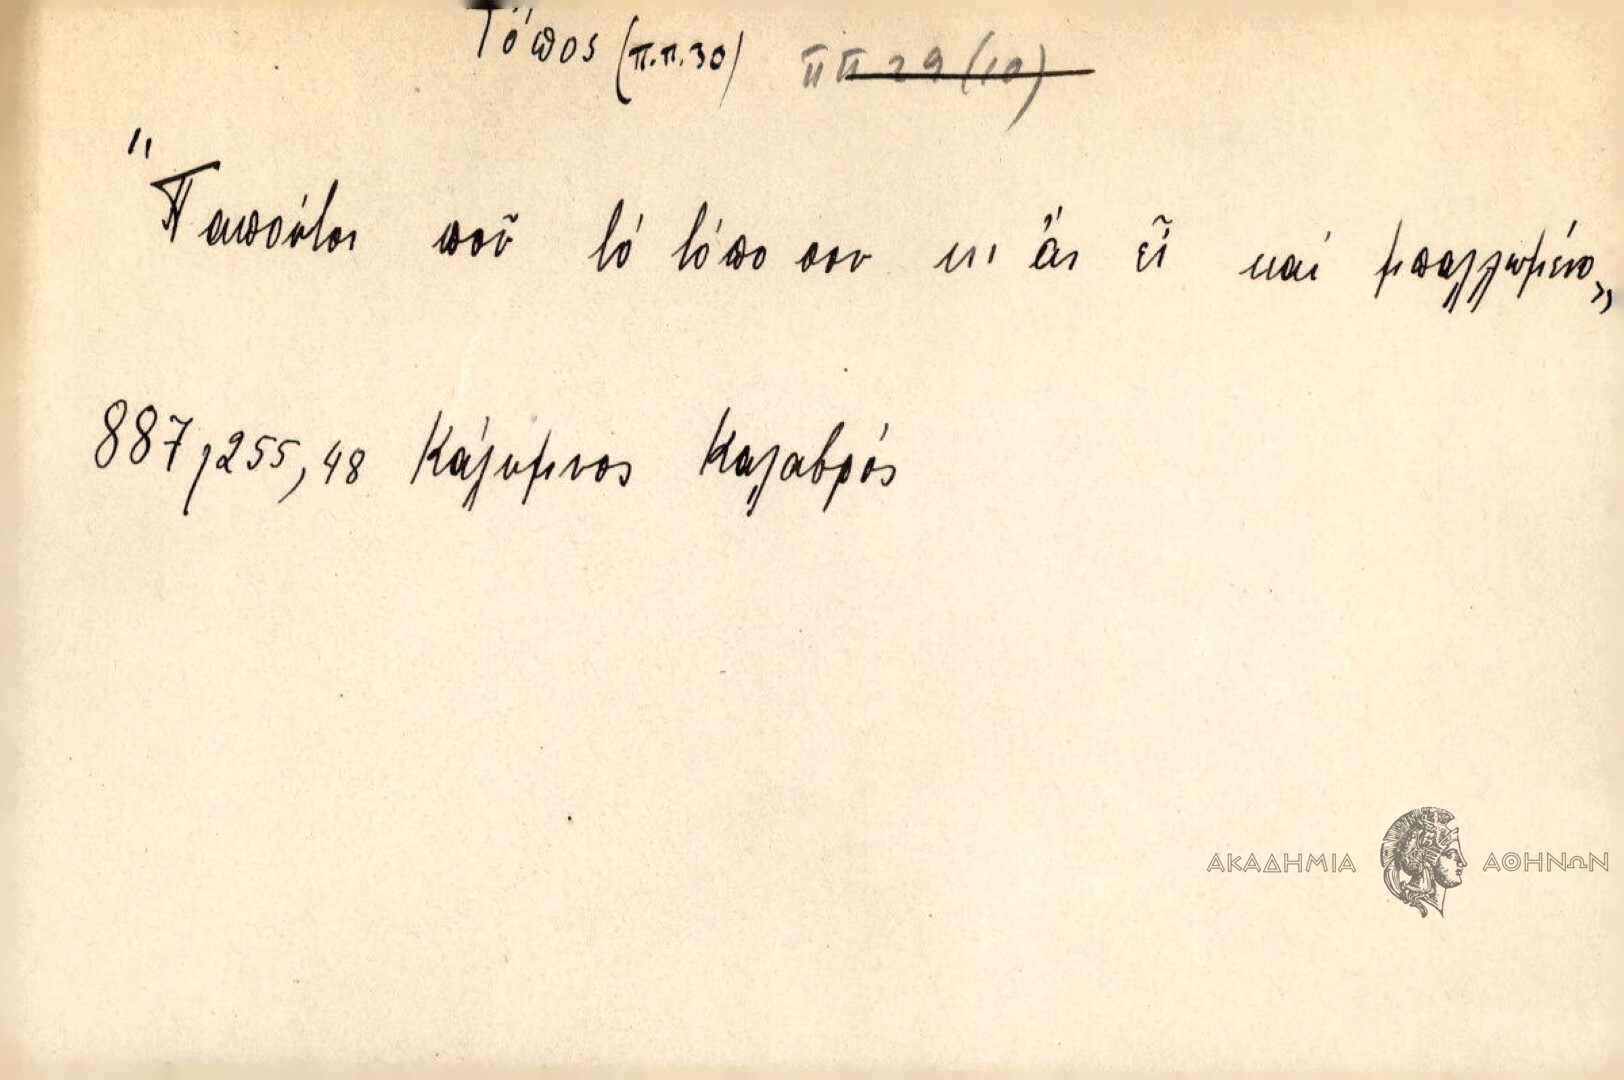 Τόπος (π.π.30) ΠΠ 29 (10)
"Παπούτσι ποῦ τό τόπο σου κι ἄς εἶ καί μπαλλωμένο„
887,255,48 Κάλυμνος Καλαβρός
ΑΚΑΔΗΜΙΑ ΑΘΗΝΩΝ